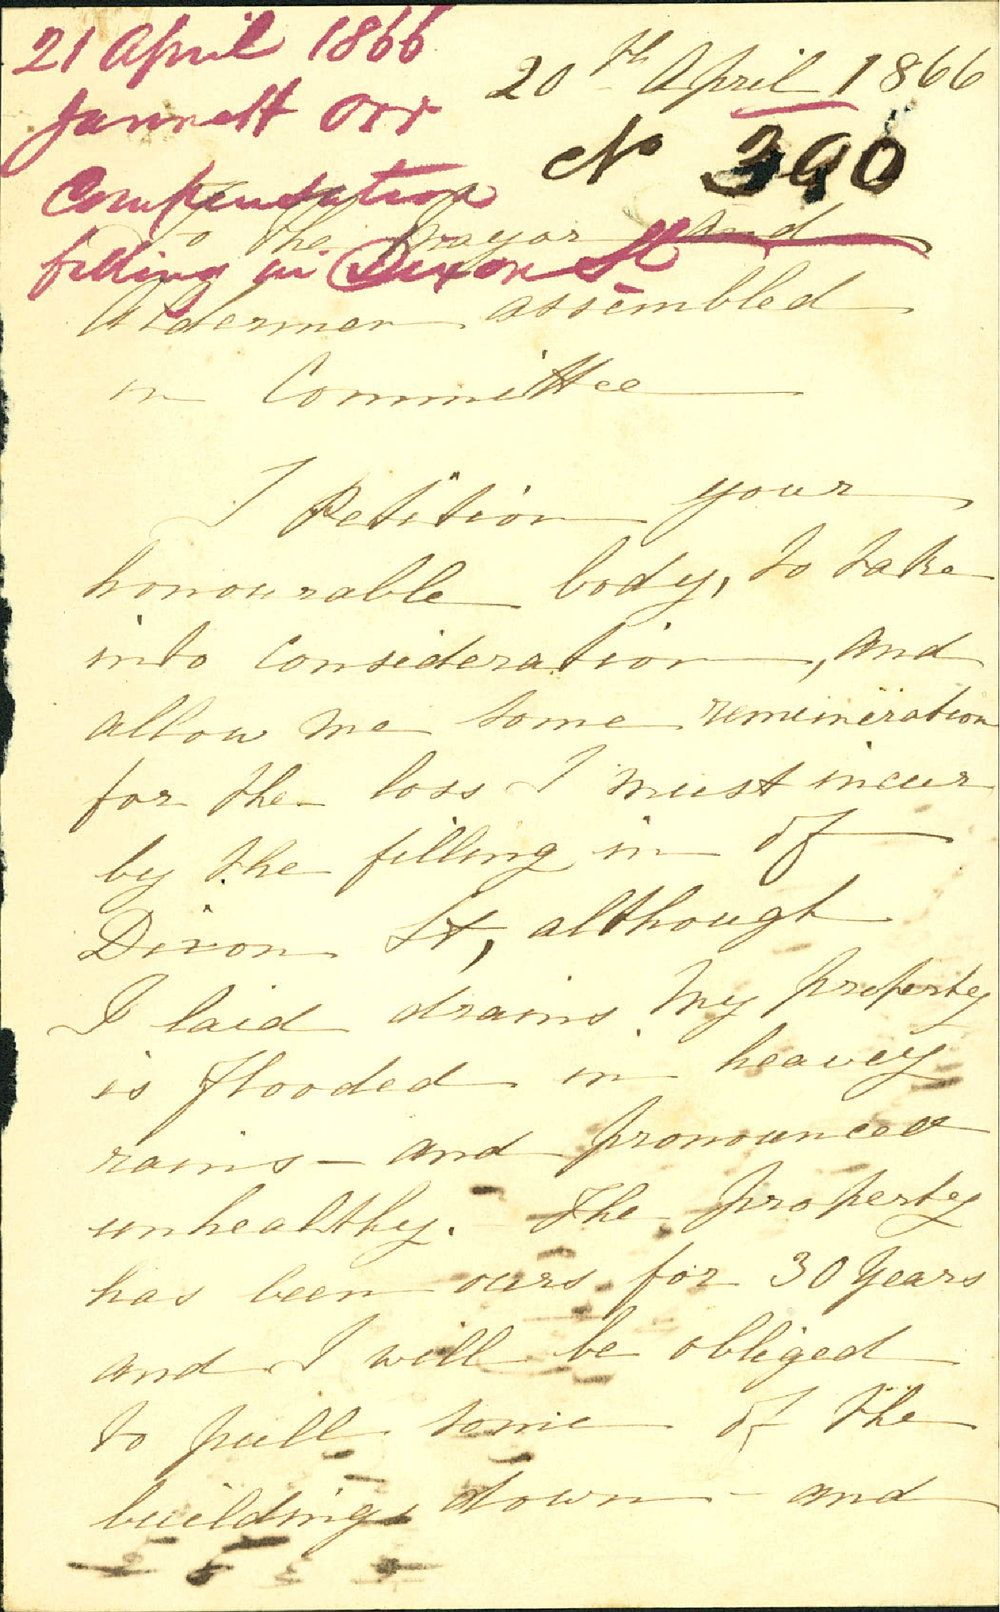 21 April 1866
Jannett Orr
Compensation
filling in Dixon St
20th April 1866
No 390
To the Mayor and
Aldermen assembled
in Committee
I Petition your
honourable body, to take
into consideration, and
allow me some remuineration
for the loss I must incur
by the filling in of
Dixon St, although
I laid drains my property
is flooded in heavey
rains - and pronounced
unhealthy. The property
has been ours for 30 years
and I will be obliged
to pull some of the
buildings down - and